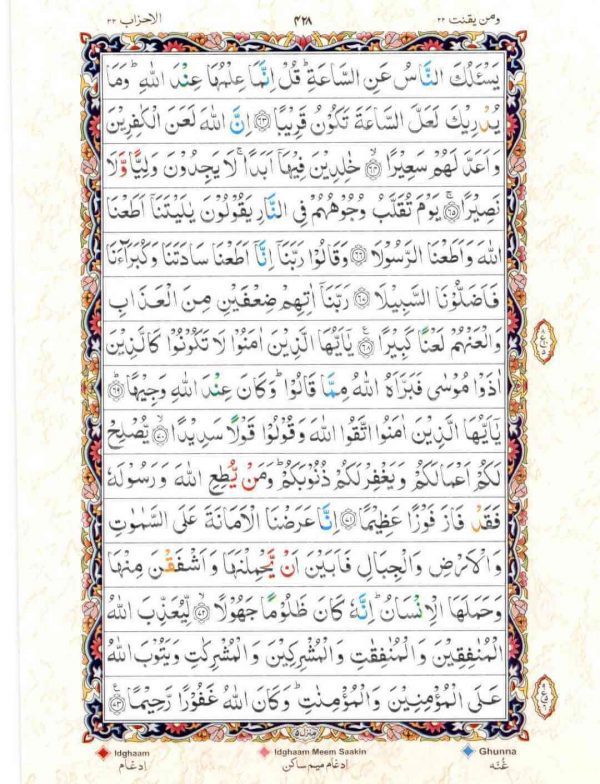 الاحزاب ٣٣ ٤٢٨ ومن يقنت ٢٢
يَسْئَلُكَ النَّاسُ عَنِ السَّاعَةِ ؕ قُلْ اِنَّمَا عِلْمُهَا عِنْدَ اللّٰهِ ؕ وَمَا
يُدْرِيْكَ لَعَلَّ السَّاعَةَ تَكُوْنُ قَرِيْبًا ﴿٦٣﴾ اِنَّ اللّٰهَ لَعَنَ الْكٰفِرِيْنَ
وَاَعَدَّ لَهُمْ سَعِيْرًا ﴿٦٤﴾ خٰلِدِيْنَ فِيْهَاۤ اَبَدًا ۚ لَا يَجِدُوْنَ وَلِيًّا وَّلَا
نَصِيْرًا ﴿٦٥﴾ يَوْمَ تُقَلَّبُ وُجُوْهُهُمْ فِي النَّارِ يَقُوْلُوْنَ يٰلَيْتَنَاۤ اَطَعْنَا
اللّٰهَ وَاَطَعْنَا الرَّسُوْلَا ﴿٦٦﴾ وَقَالُوْا رَبَّنَاۤ اِنَّاۤ اَطَعْنَا سَادَتَنَا وَكُبَرَآءَنَا
فَاَضَلُّوْنَا السَّبِيْلَا ﴿٦٧﴾ رَبَّنَاۤ اٰتِهِمْ ضِعْفَيْنِ مِنَ الْعَذَابِ
وَالْعَنْهُمْ لَعْنًا كَبِيْرًا ﴿٦٨﴾ يٰۤاَيُّهَا الَّذِيْنَ اٰمَنُوْا لَا تَكُوْنُوْا كَالَّذِيْنَ
اٰذَوْا مُوْسٰى فَبَرَّاَهُ اللّٰهُ مِمَّا قَالُوْا ؕ وَكَانَ عِنْدَ اللّٰهِ وَجِيْهًا ﴿٦٩﴾
يٰۤاَيُّهَا الَّذِيْنَ اٰمَنُوا اتَّقُوا اللّٰهَ وَقُوْلُوْا قَوْلًا سَدِيْدًا ﴿٧٠﴾ يُّصْلِحْ
لَكُمْ اَعْمَالَكُمْ وَيَغْفِرْ لَكُمْ ذُنُوْبَكُمْ ؕ وَمَنْ يُّطِعِ اللّٰهَ وَرَسُوْلَهٗ
فَقَدْ فَازَ فَوْزًا عَظِيْمًا ﴿٧١﴾ اِنَّا عَرَضْنَا الْاَمَانَةَ عَلَى السَّمٰوٰتِ
وَالْاَرْضِ وَالْجِبَالِ فَاَبَيْنَ اَنْ يَّحْمِلْنَهَا وَاَشْفَقْنَ مِنْهَا
وَحَمَلَهَا الْاِنْسَانُ ؕ اِنَّهٗ كَانَ ظَلُوْمًا جَهُوْلًا ﴿٧٢﴾ لِّيُعَذِّبَ اللّٰهُ
الْمُنٰفِقِيْنَ وَالْمُنٰفِقٰتِ وَالْمُشْرِكِيْنَ وَالْمُشْرِكٰتِ وَيَتُوْبَ اللّٰهُ
عَلَى الْمُؤْمِنِيْنَ وَالْمُؤْمِنٰتِ ؕ وَكَانَ اللّٰهُ غَفُوْرًا رَّحِيْمًا ﴿٧٣﴾
منزل ٥
Idghaam Idghaam Meem Saakin Ghunna
اِدغام اِدغام میم ساکن غُنّه